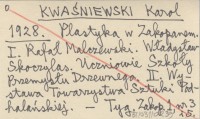 KWAŚNIEWSKI Karol
1928. Plastyka w Zakopanem.
I. Rafał Malczewski. Władysław
Skoczylas. Uczniowie Szkoły
Przemysłu Drzewnego. II. Wy-
stawa Towarzystwa Sztuki Pod-
halańskiej. — Tyg. Zakop. 1 nr 3